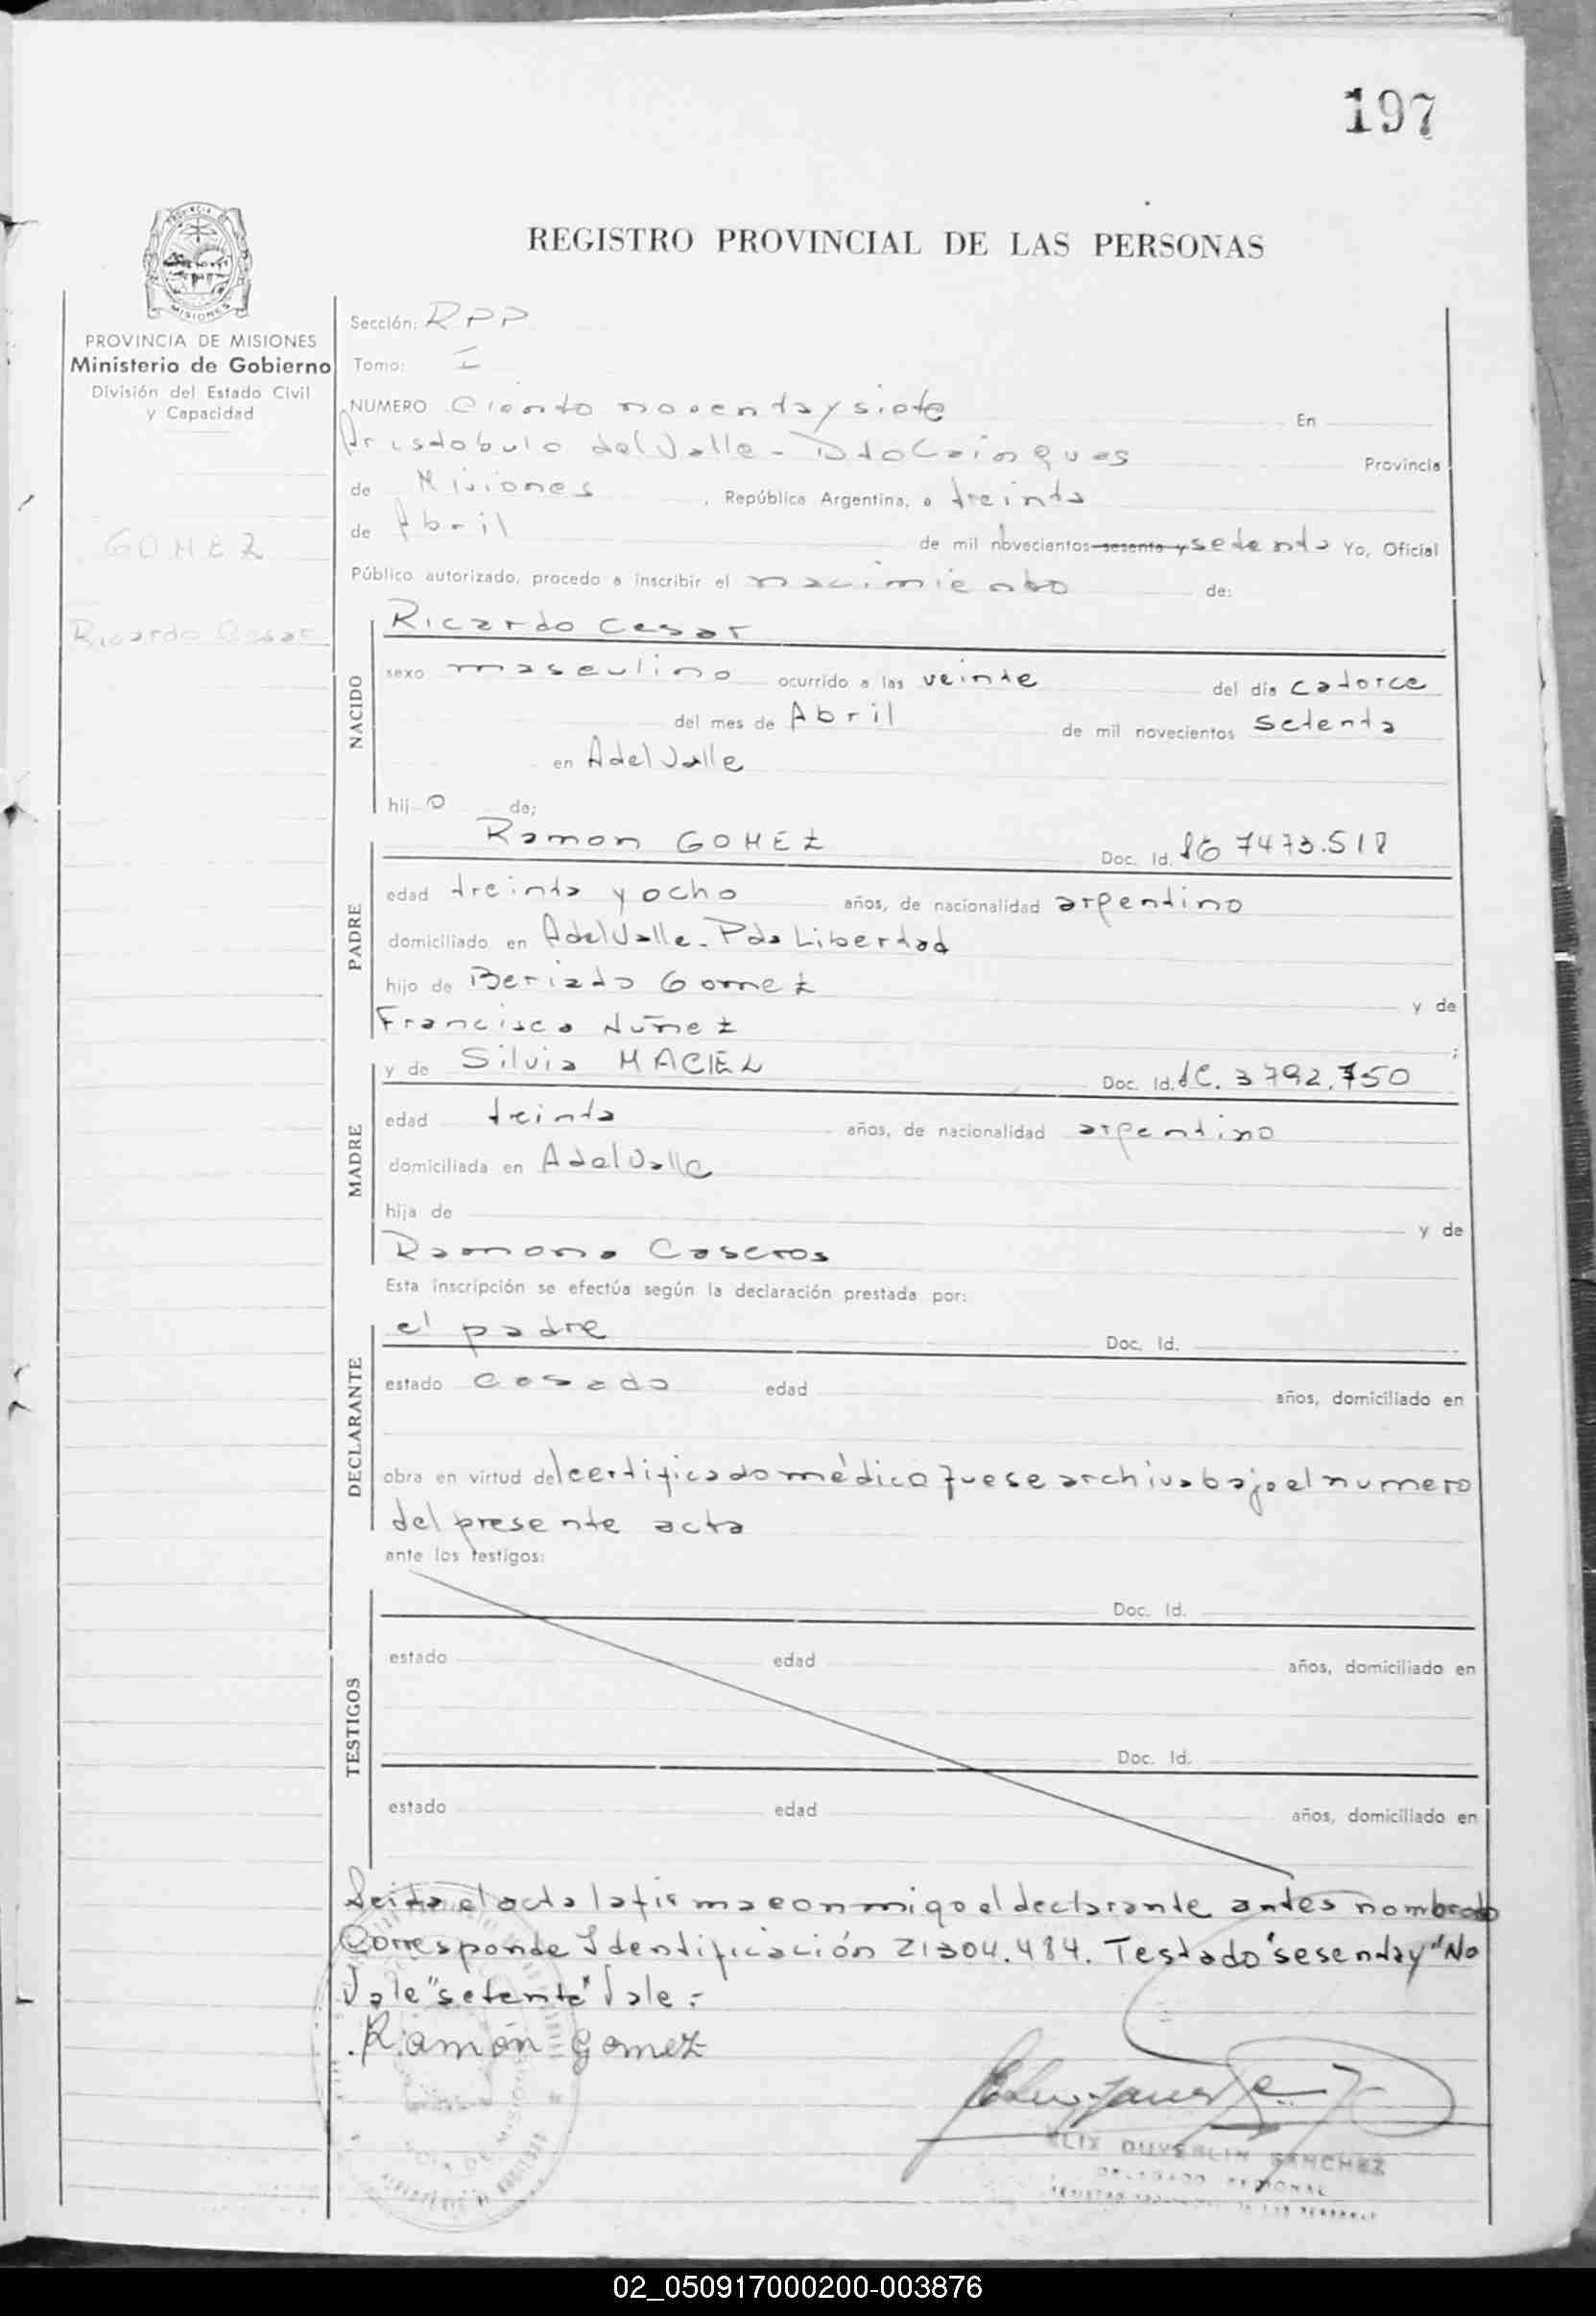 197
REGISTRO PROVINCIAL DE LAS PERSONAS
PROVINCIA DE MISIONES
Ministerio de Gobierno
División del Estado Civil
y Capacidad
GOMEZ
Ricardo Cesar
Sección: RPP
Tomo: I
NUMERO Ciento noventa y siete En
Aristobulo del Valle - Dto Cainguas Provincia
de Misiones, República Argentina, a treinta
de Abril de mil novecientos sesenta y setenta Yo, Oficial
Público autorizado, procedo a inscribir el nacimiento de:
NACIDO
Ricardo Cesar
sexo masculino ocurrido a las veinte del día catorce
del mes de Abril de mil novecientos setenta
en A del Valle
hijo de;
PADRE
Ramon GOMEZ Doc. Id. 7473.518
edad treinta y ocho años, de nacionalidad argentino
domiciliado en A del Valle - Pda Libertad
hijo de Gomez y de
Francisca Nuñez ;
MADRE
y de Silvia MACIEL Doc. Id. LC. 3792.750
edad treinta años, de nacionalidad argentino
domiciliada en A del Valle
hija de y de
Ramona Caseros
Esta inscripción se efectúa según la declaración prestada por:
DECLARANTE
el padre Doc. Id.
estado casado edad años, domiciliado en
obra en virtud del certificado médico que se archiva bajo el numero
del presente acta
ante los testigos:
TESTIGOS
Doc. Id.
estado edad años, domiciliado en
Doc. Id.
estado edad años, domiciliado en
Leida el acta la firma conmigo el declarante antes nombrado
Corresponde Identificación 21304.484. Testado "sesenta y" No
Vale "setenta" Vale:-
Ramón Gomez
DUVERLIN SANCHEZ
DELEGADO REGIONAL
02_050917000200-003876